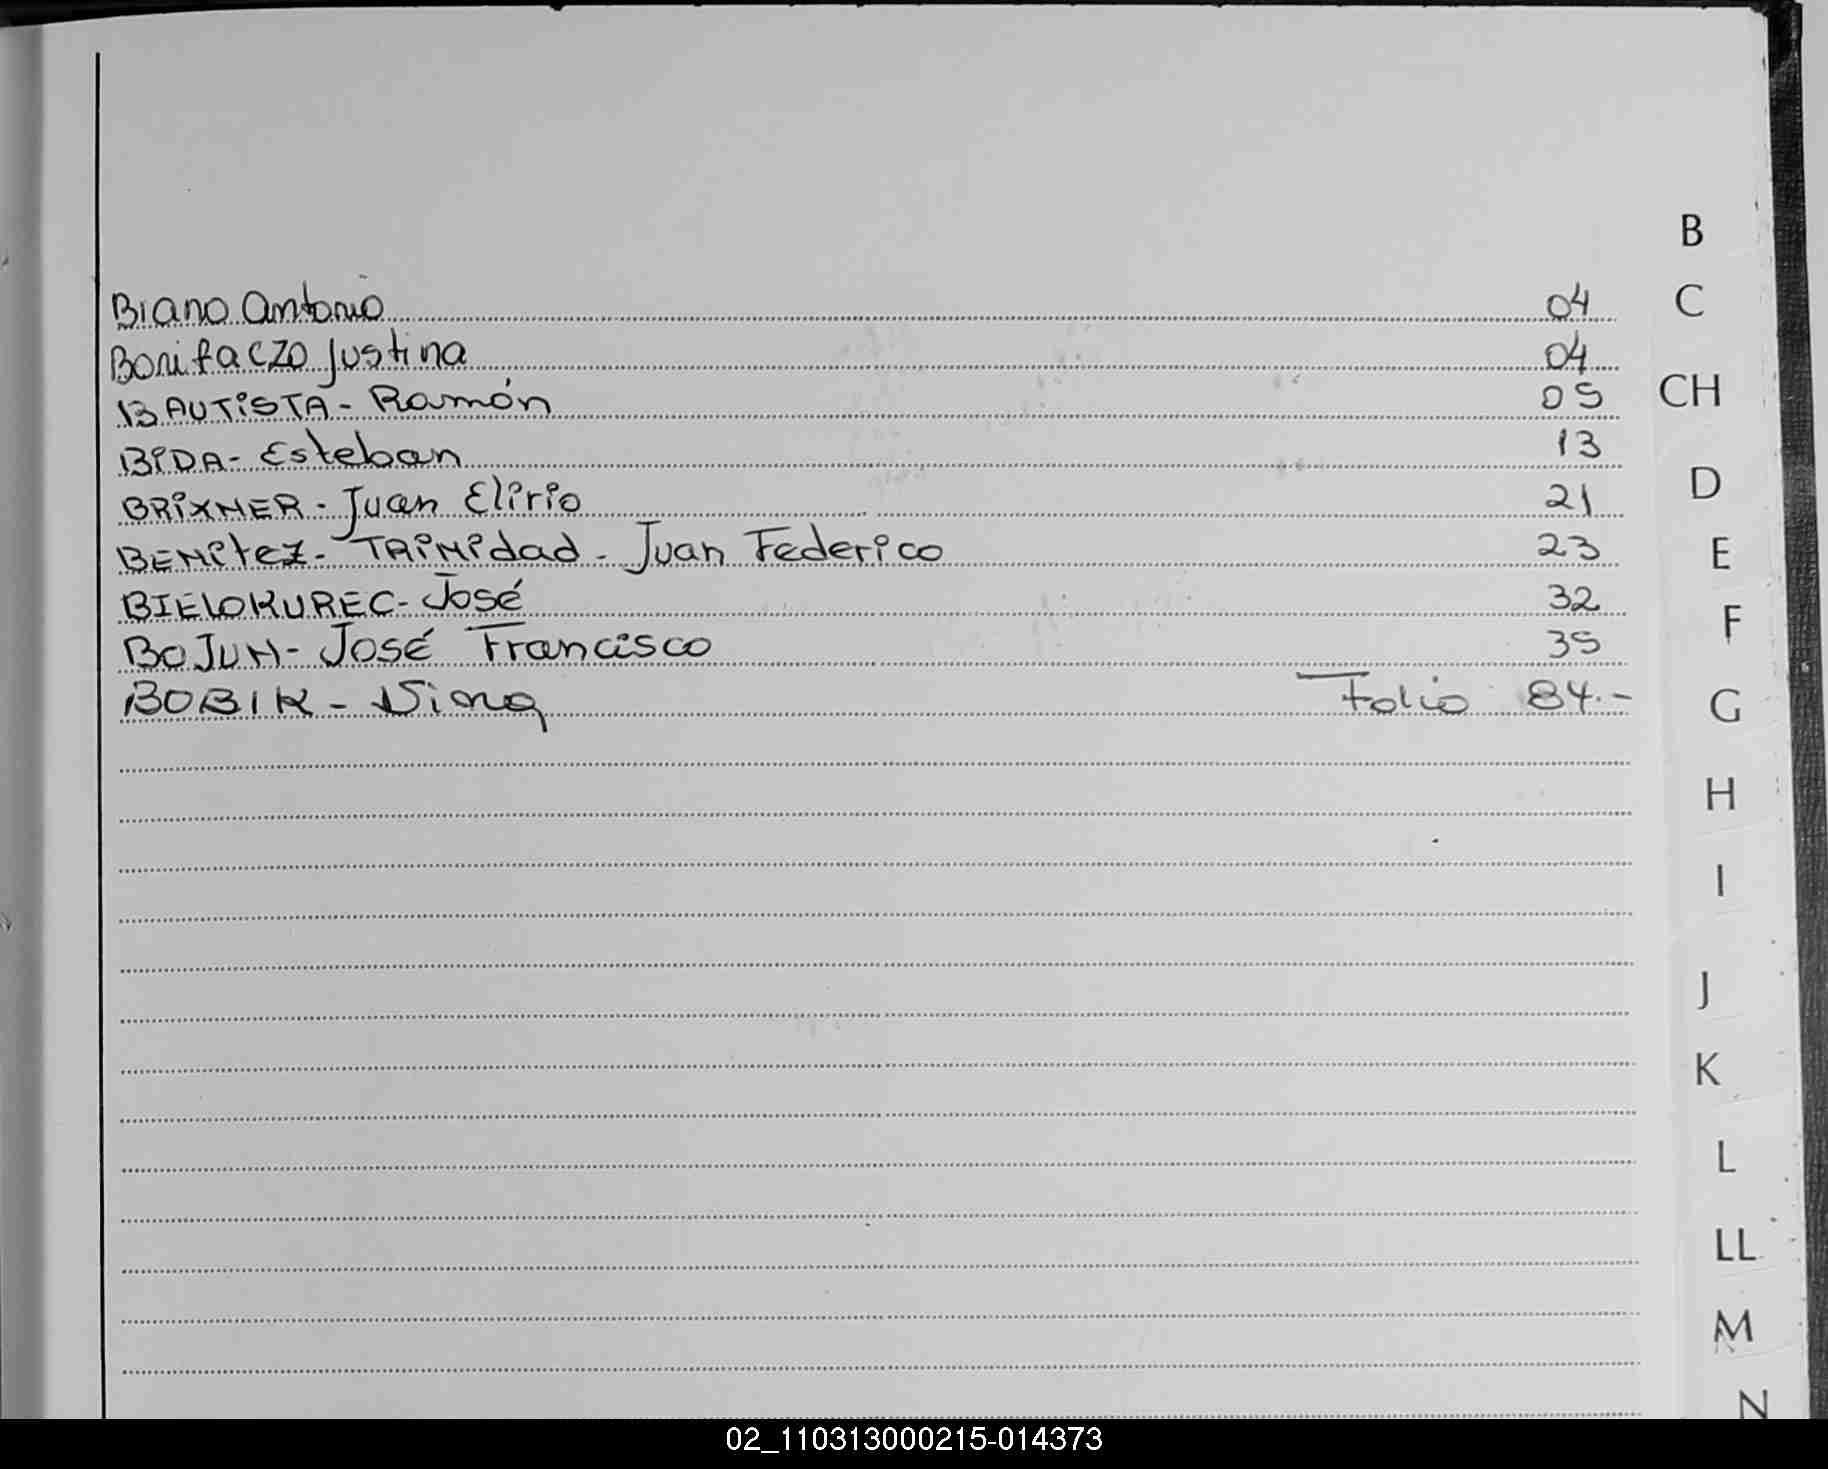 B
Biano Antonio 04 C
Bonifaczo Justina 04
BAUTiSTA - Ramón 05 CH
BiDA - Esteban 13
BRiXNER - Juan Elirio 21 D
BENitez - TRiNidad - Juan Federico 23 E
BIELOKUREC - José 32 F
BOJUN - José Francisco 35
BOBIK - Folio 84.- G
H
I
J
K
L
LL
M
N
02_110313000215-014373